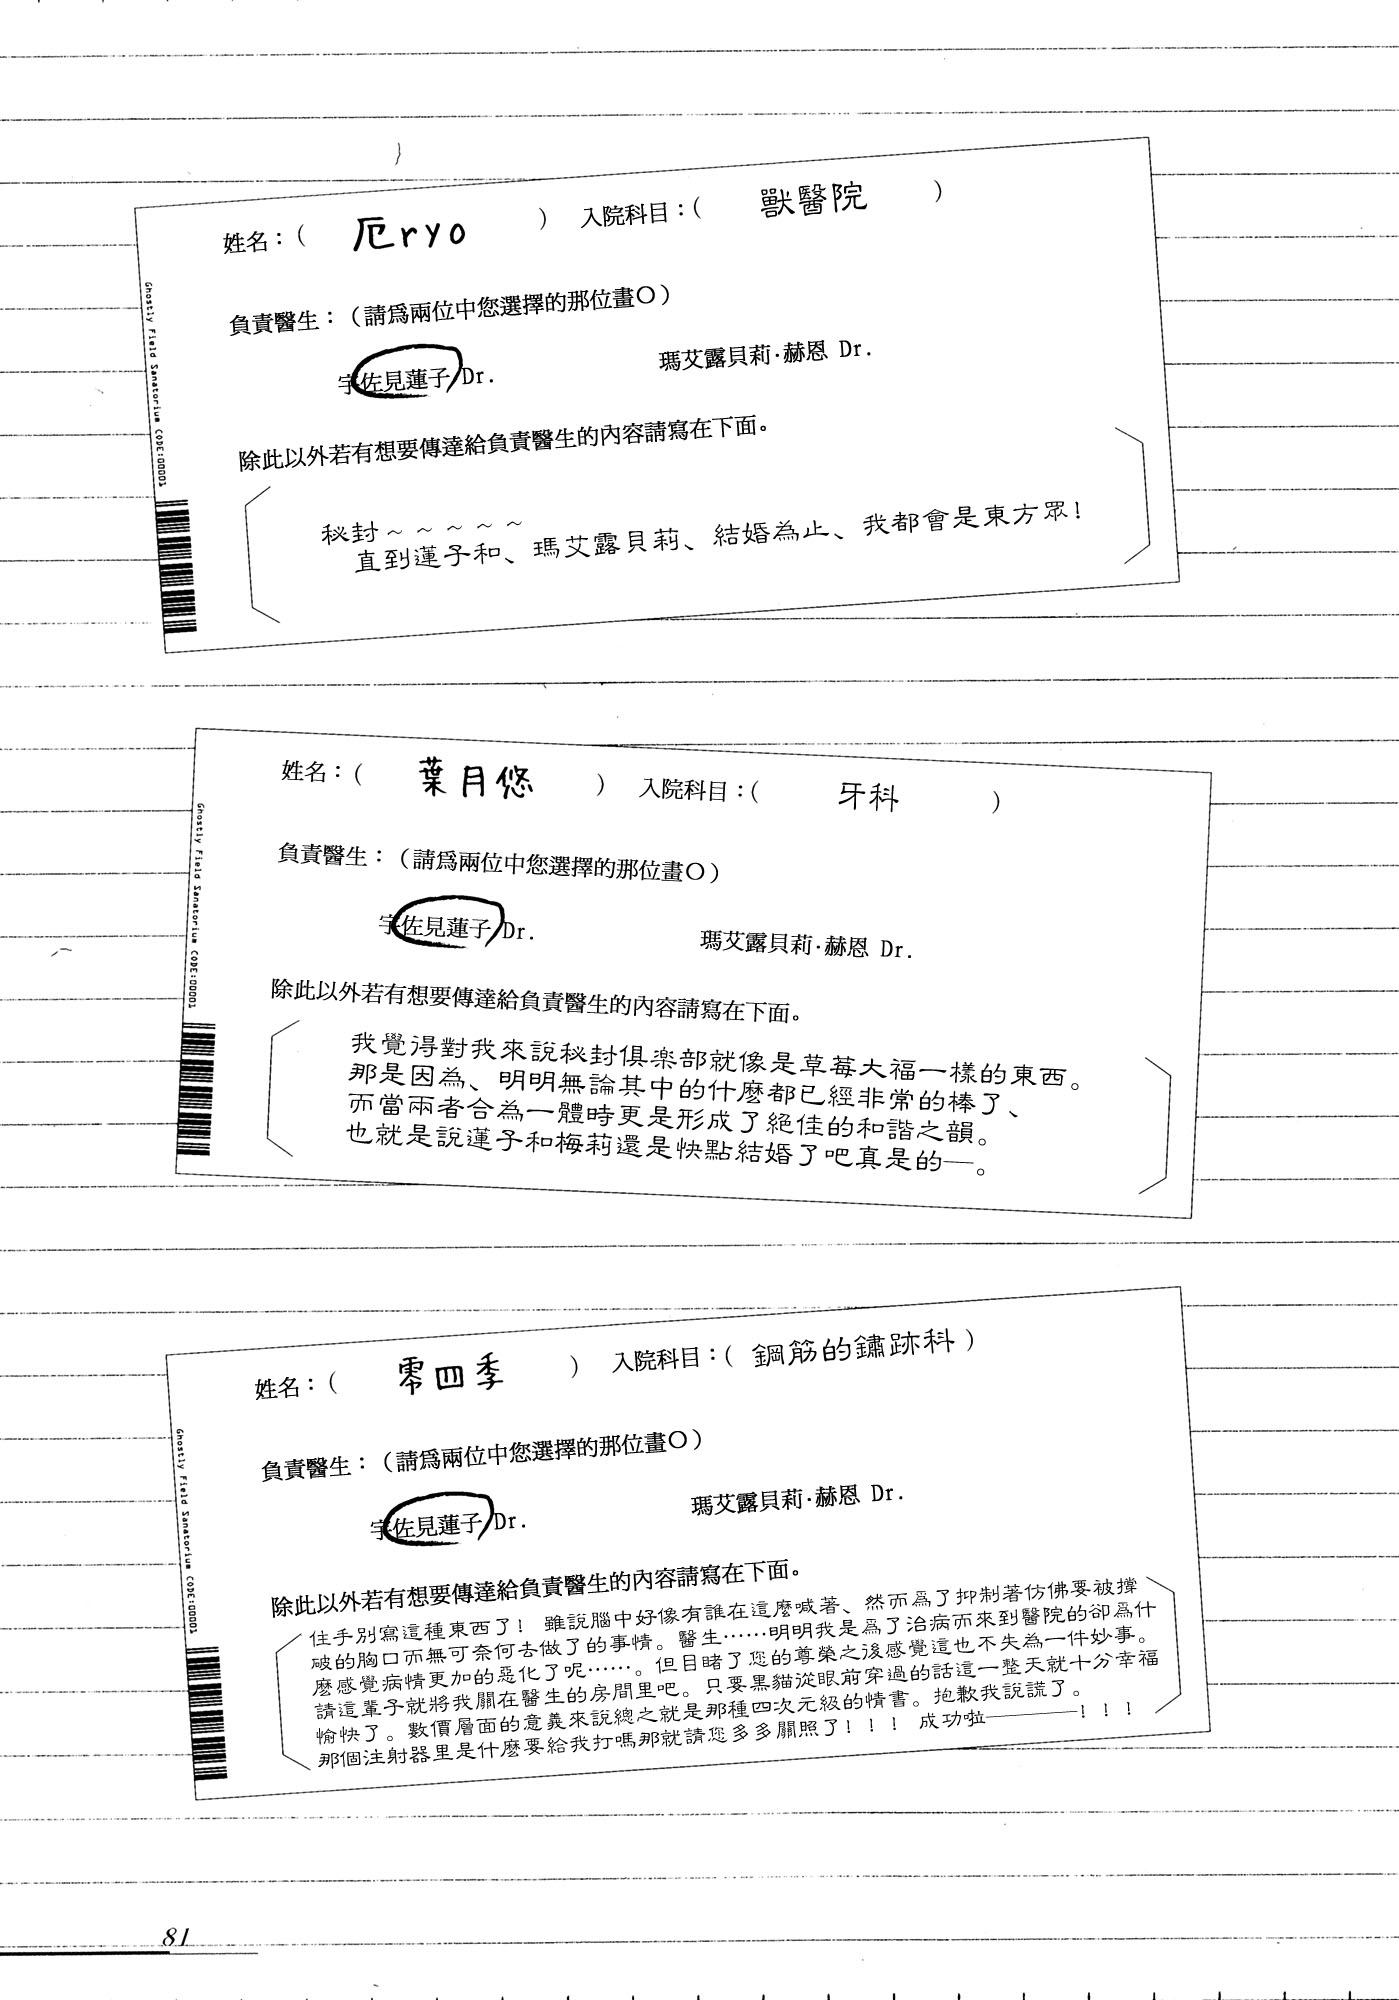 姓名：( 厄ryo ) 入院科目：( 獸醫院 )
負責醫生：（請爲兩位中您選擇的那位畫〇）
宇佐見蓮子 Dr. 瑪艾露貝莉·赫恩 Dr.
除此以外若有想要傳達給負責醫生的內容請寫在下面。
秘封～～～～～
直到蓮子和、瑪艾露貝莉、結婚為止、我都會是東方眾!
Ghostly Field Sanatorium CODE:00001
姓名：( 葉月悠 ) 入院科目：( 牙科 )
負責醫生：（請爲兩位中您選擇的那位畫〇）
宇佐見蓮子 Dr. 瑪艾露貝莉·赫恩 Dr.
除此以外若有想要傳達給負責醫生的內容請寫在下面。
我覺得對我來說秘封俱楽部就像是草莓大福一樣的東西。
那是因為、明明無論其中的什麼都已經非常的棒了、
而當兩者合為一體時更是形成了絕佳的和諧之韻。
也就是說蓮子和梅莉還是快點結婚了吧真是的—。
Ghostly Field Sanatorium CODE:00001
姓名：( 零四季 ) 入院科目：( 鋼筋的鏽跡科 )
負責醫生：（請爲兩位中您選擇的那位畫〇）
宇佐見蓮子 Dr. 瑪艾露貝莉·赫恩 Dr.
除此以外若有想要傳達給負責醫生的內容請寫在下面。
住手別寫這種東西了! 雖說腦中好像有誰在這麼喊著、然而爲了抑制著仿佛要被撐
破的胸口而無可奈何去做了的事情。醫生……明明我是爲了治病而來到醫院的卻爲什
麼感覺病情更加的惡化了呢……。但目睹了您的尊榮之後感覺這也不失為一件妙事。
請這輩子就將我關在醫生的房間里吧。只要黑貓從眼前穿過的話這一整天就十分幸福
愉快了。數價層面的意義來說總之就是那種四次元級的情書。抱歉我說謊了。
那個注射器里是什麼要給我打嗎那就請您多多關照了!!! 成功啦————!!!
Ghostly Field Sanatorium CODE:00001
81